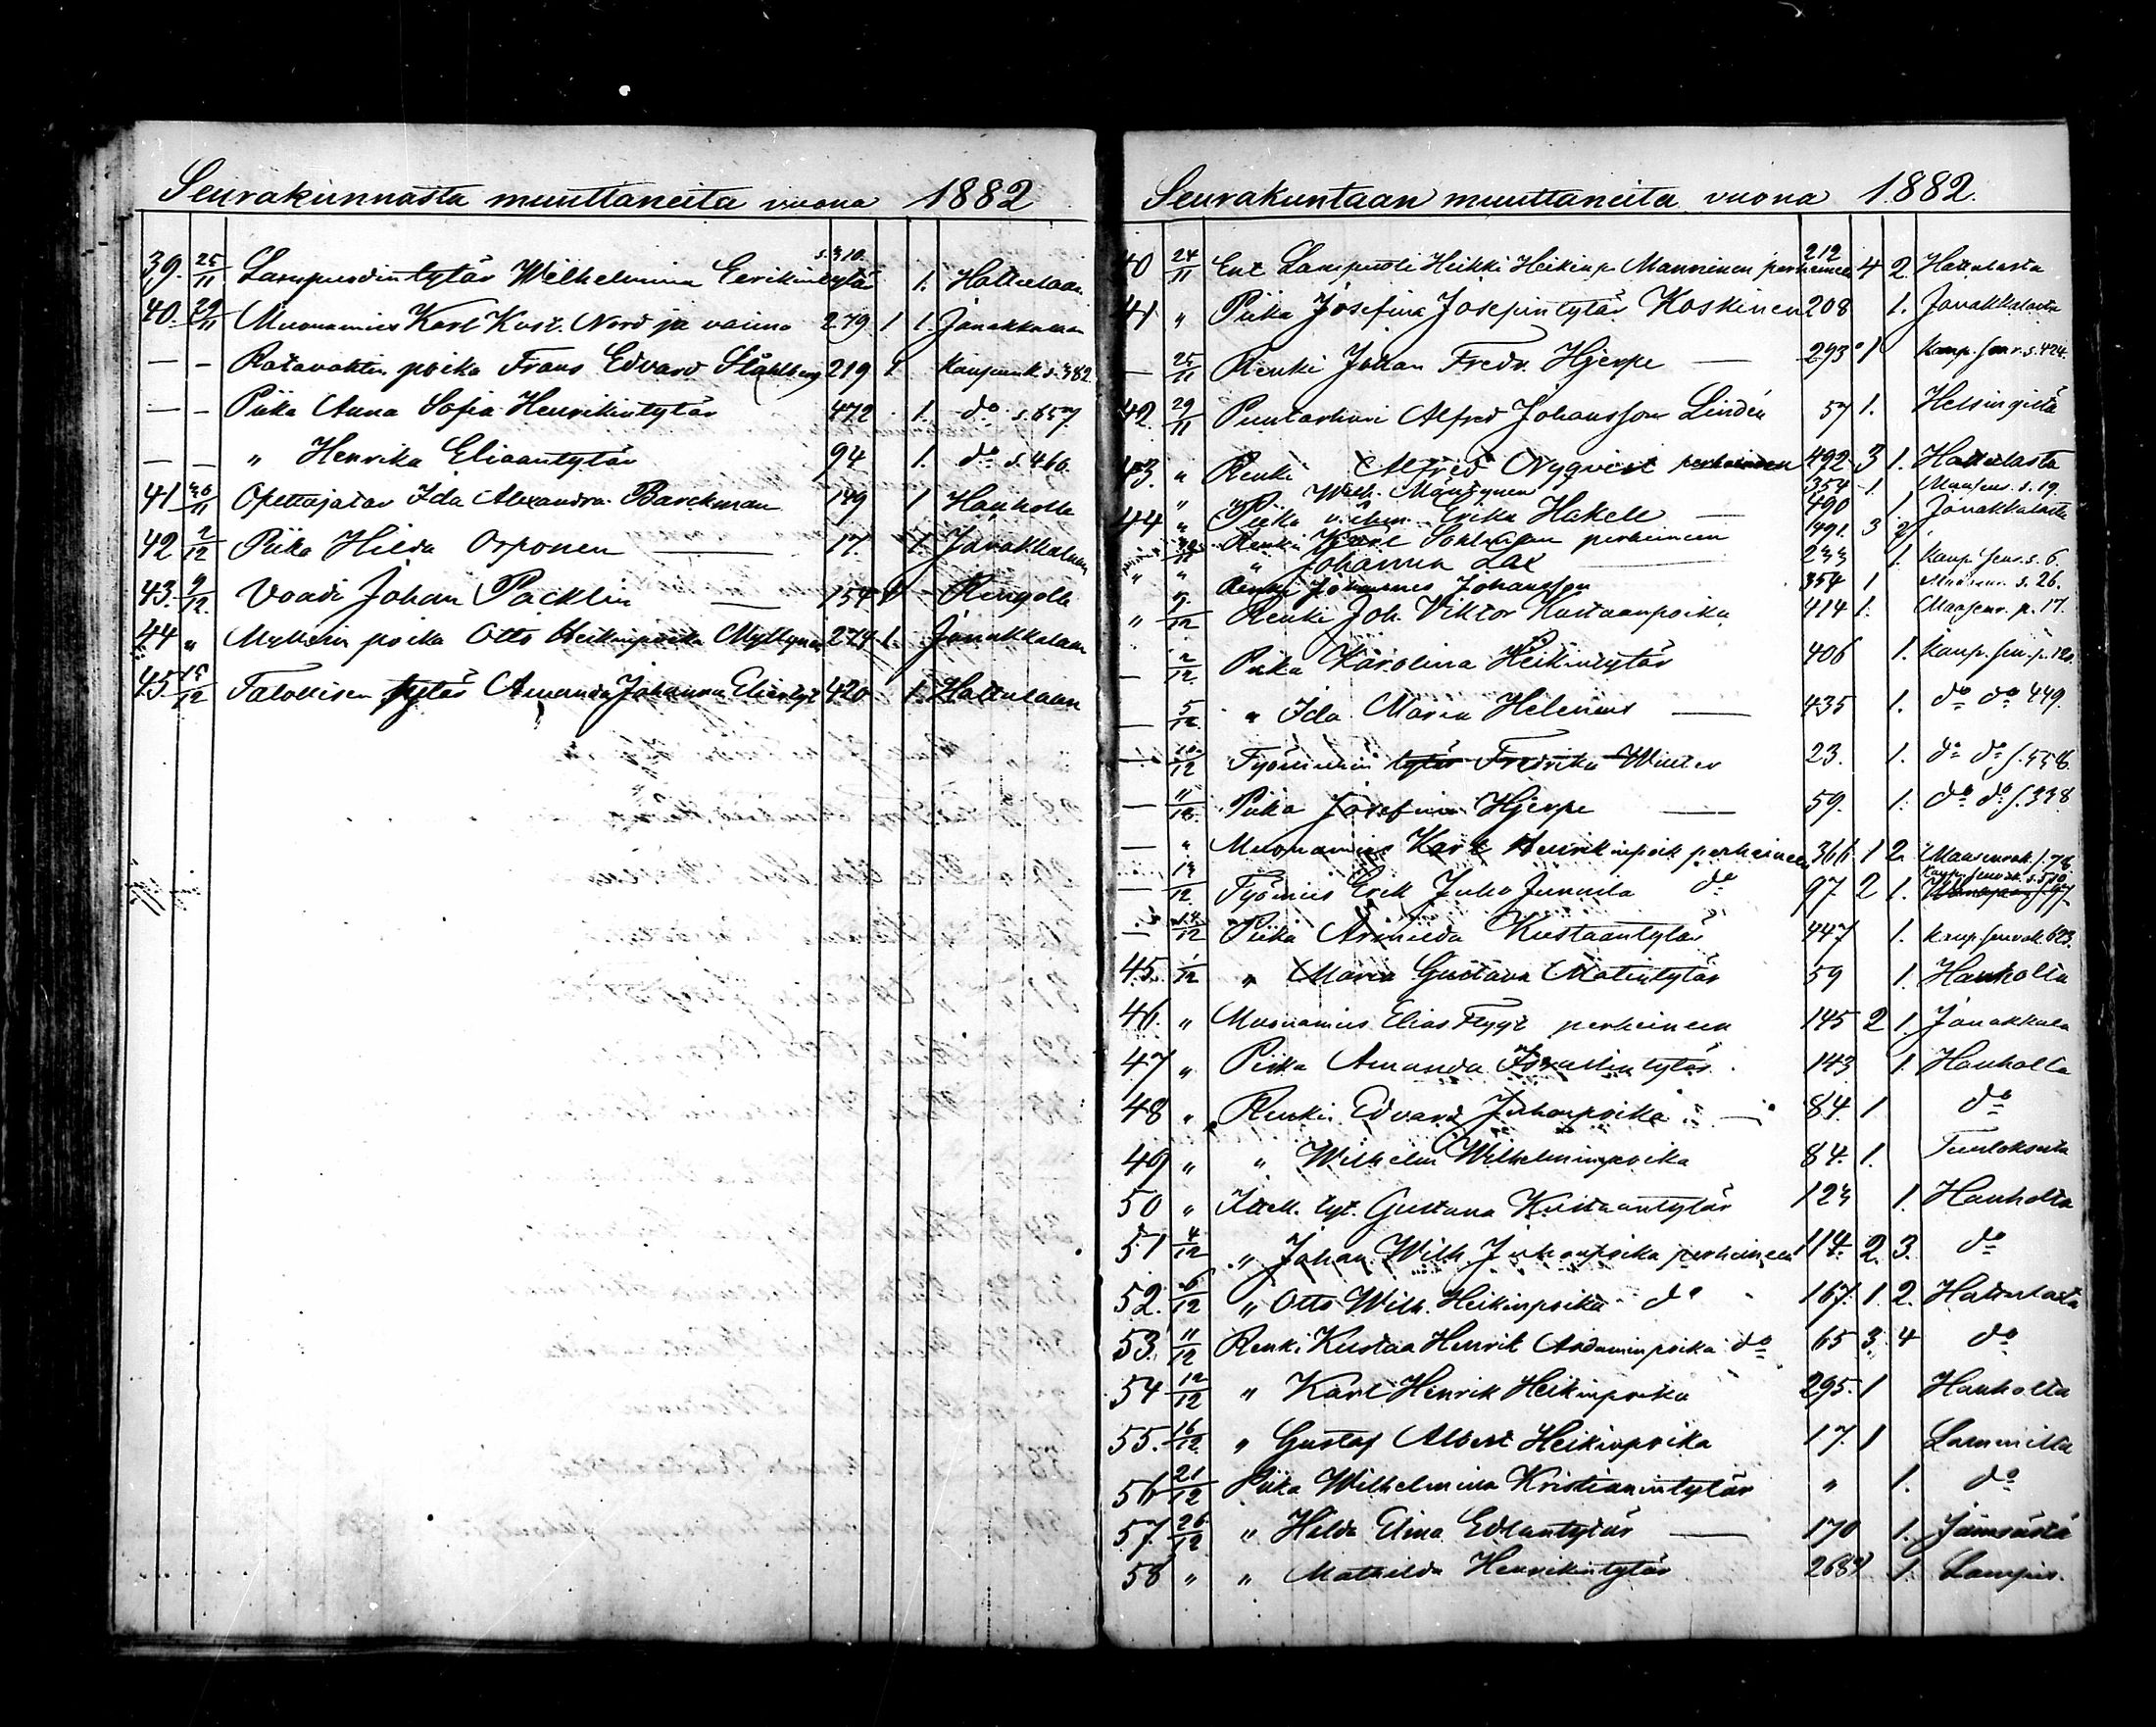 Seurakunnasta muuttaneita vuona 1882
39. 25/11 Lampuodintytär Wilhelmina Eerikintytär s. 310. 1. Hattulaan
40. 29/11 Muonamies Karl Kust. Nord ja vaimo 279 1 1. Janakkalaan
— – Ratavahtin poika Frans Edvard Ståhlberg 219 1 Kaupunk. s. 382
— – Piika Anna Sofia Henrikintytär 472 1. do s. 657
— – „ Henrika Eliaantytär 94 1. do s. 460.
41 30/11 Opettajatar Ida Alexandra Barckman 149 1 Hauholle
42 2/12 Piika Hilda Orponen — 17. 1. Janakkalaan
43. 9/12 Vouti Johan Packlin — 154 1 Ringolle
44 „ Myllärin poika Otto Heikinpoika Myllynen 274 1. Janakkalaan
45. 15/12 Talollisen tytär Amanda Johanna Eliantyt 420 1. Hattulaan
Seurakuntaan muuttaneita vuona 1882.
40 24/11 Ent Lampuoti Heikki Heikinp. Manninen perheineen 212 4 2. Hattulasta
41 „ Piika Josefina Josepintytär Koskinen 208 1. Janakkalasta
— 25/11 Renki Johan Fredr. Hjerpe — 293 1 Kaup. seur. s. 424.
42. 29/11 Puutarhuri Alfred Johansson Lindén 57 1. Helsingistä
43. „ Renki Alfred Nyqvist perheineen 492 3 1. Hattulasta
„ Wilh. Mäntynen 354 1. Maaseur. s. 19.
44 „ Piika Erika Hakell — 490 1. Janakkalasta
Renki Karl Sohlman perheineen 491. 3 2
„ „ „ Johanna Lax — 233 1. Kaup. seur. s. 6.
Renki Johannes Johansson 354 1 Maaseur. s. 26.
„ /12 Renki Joh. Viktor Kustaanpoika 414 1. Maaseur. p. 17.
— 2/12 Piika Karolina Heikintytär 406 1. Kaup. seu. p. 120.
— 5/12 „ Ida Maria Helenius — 435 1. do do 449.
— 10/12 Työmiehen tytär Fredrika Winter 23. 1. do do s. 556.
— 11/12 Piika Josefina Hjerpe — 59. 1. do do s. 338.
— „ Muonamies Karl Henrikinpoik perheineen 366 1 2. Maaseurak. s. 76
— 13/12 Työmies Erik Juho Junnila do 97 2 1. Kaup. seurak. s. 510
— 14/12 Piika Armilda Kustaantytär 447 1. Kaup. seurak. 623.
45. 1/12 „ Maria Gustava Matintytär 59 1. Hauholta
46. „ Muonamies Elias Flygt perheineen 145 2 1. Janakkala
47 „ Piika Amanda Israelintytär 143 1. Hauholta
48 „ Renki Edvard Juhonpoika — 84. 1 do
49 „ „ Wilhelm Wilhelminpoika 84. 1. Tuuloksesta
50 „ Itsell. tyt. Gustava Kustaantytär 123 1. Hauholta
51 4/12 „ Johan Wilh. Juhonpoika perheineen 114. 2. 3. do
52. 6/12 „ Otto Wilh. Heikinpoika do 167. 1. 2. Hattulasta
53. 11/12 Renki Kustaa Henrik Aadaminpoika do 65 3. 4 do
54 12/12 „ Karl Henrik Heikinpoika 295. 1 Hauholta
55. 16/12 „ Gustaf Albert Heikinpoika 17. 1 Lammilta
56 21/12 Piika Wilhelmina Kristianintytär „ 1. do
57. 26/12 „ Hilda Elina Edlantytär — 170 1. Jämsästä
58 „ „ Mathilda Henrikintytär 268 1. Lampis.